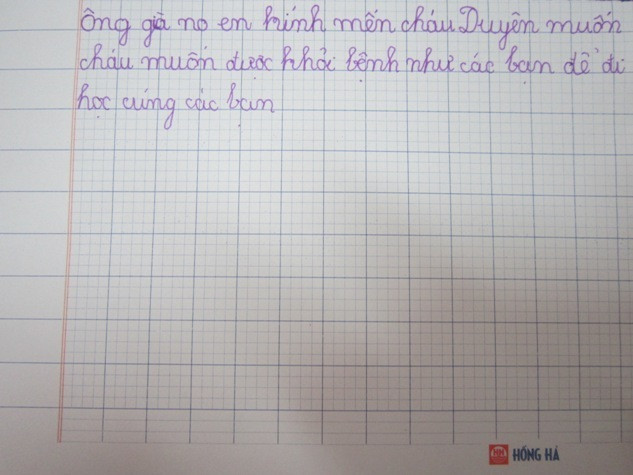 Ông già no en kính mến cháu Duyên muốn
cháu muốn được khỏi bệnh như các bạn để đi
học cùng các bạn
HỒNG HÀ